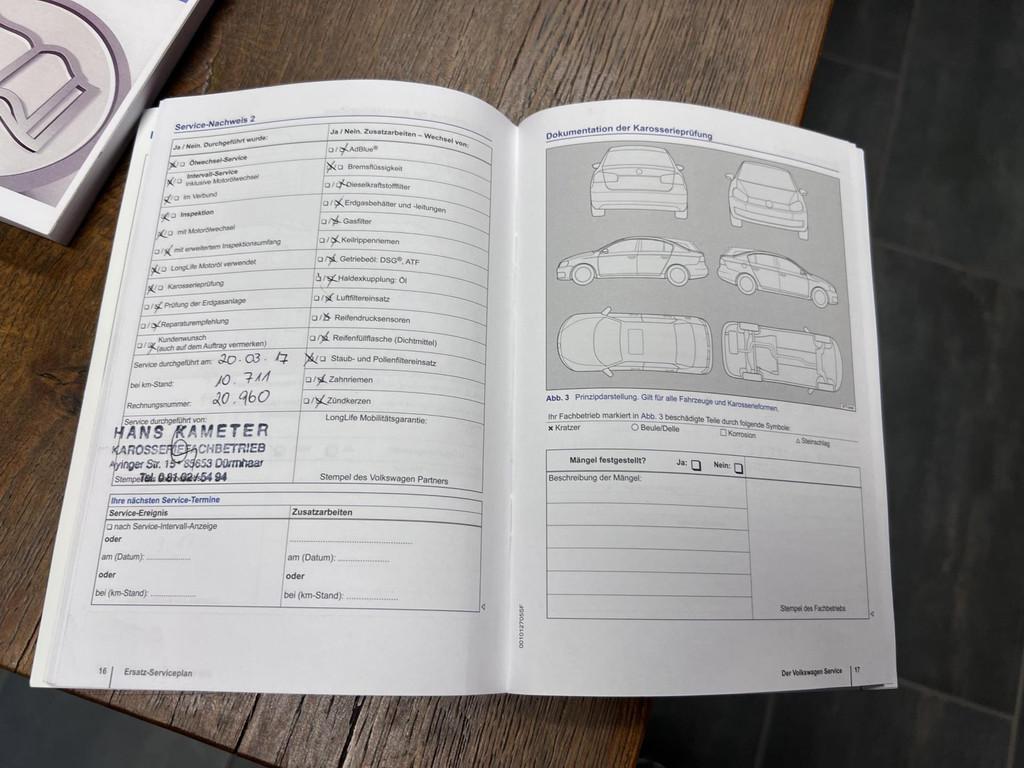 Service-Nachweis 2
Ja / Nein. Durchgeführt wurde:
☒/❑ Ölwechsel-Service
☒/❑ Intervall-Service
inklusive Motorölwechsel
☒/❑ im Verbund
☒/❑ Inspektion
☒/❑ mit Motorölwechsel
❑/☒ mit erweitertem Inspektionsumfang
☒/❑ LongLife Motoröl verwendet
☒/❑ Karosserieprüfung
❑/☒ Prüfung der Erdgasanlage
❑/☒ Reparaturempfehlung
❑/☒ Kundenwunsch
(auch auf dem Auftrag vermerken)
Service durchgeführt am: 20.03.17
bei km-Stand: 10.711
Rechnungsnummer: 20.960
Service durchgeführt von:
HANS KAMETER
KAROSSERIEFACHBETRIEB
Ayinger Str. 15 · 85653 Dürrnhaar
Tel. 0 81 02 / 54 94
Ja / Nein. Zusatzarbeiten – Wechsel von:
❑/☒ AdBlue®
☒/❑ Bremsflüssigkeit
❑/☒ Dieselkraftstofffilter
❑/☒ Erdgasbehälter und -leitungen
❑/☒ Gasfilter
❑/☒ Keilrippenriemen
❑/☒ Getriebeöl: DSG®, ATF
❑/☒ Haldexkupplung: Öl
❑/☒ Luftfiltereinsatz
❑/☒ Reifendrucksensoren
❑/☒ Reifenfüllflasche (Dichtmittel)
☒/❑ Staub- und Pollenfiltereinsatz
❑/☒ Zahnriemen
❑/☒ Zündkerzen
LongLife Mobilitätsgarantie:
Stempel des Volkswagen Partners
Ihre nächsten Service-Termine
Service-Ereignis
❑ nach Service-Intervall-Anzeige
oder
am (Datum): ................
oder
bei (km-Stand): ................
Zusatzarbeiten
............................................
am (Datum): ...................
oder
bei (km-Stand): ...................
16 Ersatz-Serviceplan
Dokumentation der Karosserieprüfung
Abb. 3 Prinzipdarstellung. Gilt für alle Fahrzeuge und Karosserieformen.
Ihr Fachbetrieb markiert in Abb. 3 beschädigte Teile durch folgende Symbole:
× Kratzer ○ Beule/Delle □ Korrosion △ Steinschlag
Mängel festgestellt? Ja: ❑ Nein: ❑
Beschreibung der Mängel:
Stempel des Fachbetriebs
001012705SF
Der Volkswagen Service 17